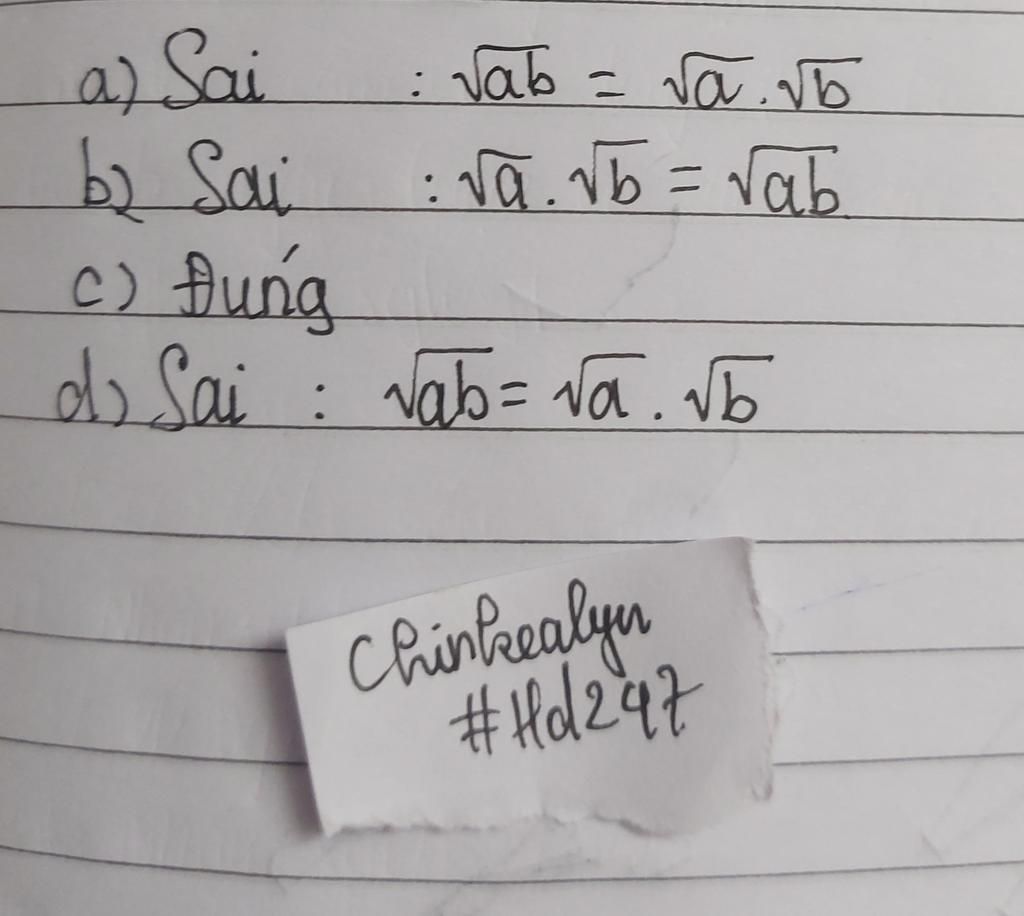 a) Sai : √ab = √a . √b
b) Sai : √a . √b = √ab
c) Đúng
d) Sai : √ab = √a . √b
Chinkealyn
#Hd247